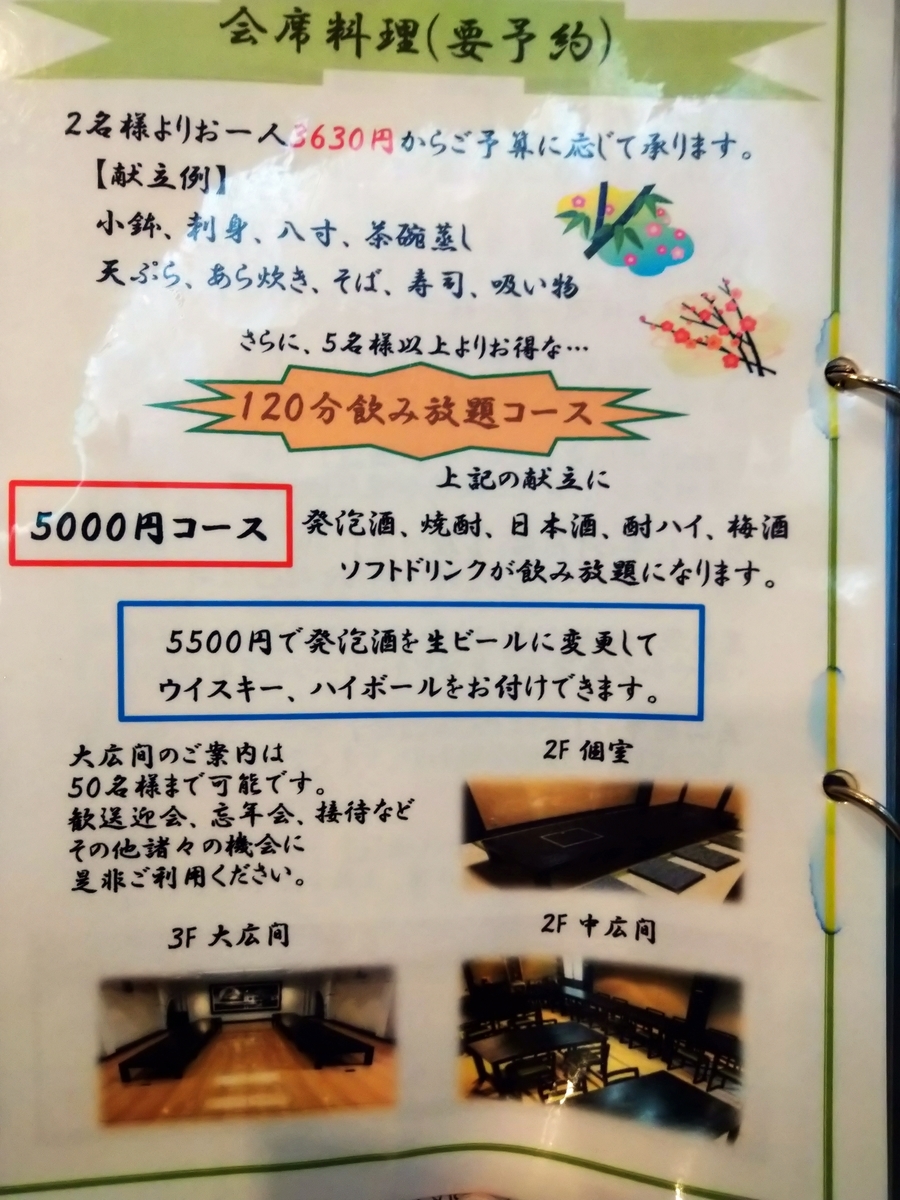 会席料理(要予約)
2名様よりお一人3630円からご予算に応じて承ります。
【献立例】
小鉢、刺身、八寸、茶碗蒸し
天ぷら、あら炊き、そば、寿司、吸い物
さらに、5名様以上よりお得な…
120分飲み放題コース
上記の献立に
5000円コース
発泡酒、焼酎、日本酒、酎ハイ、梅酒
ソフトドリンクが飲み放題になります。
5500円で発泡酒を生ビールに変更して
ウイスキー、ハイボールをお付けできます。
大広間のご案内は
50名様まで可能です。
歓送迎会、忘年会、接待など
その他諸々の機会に
是非ご利用ください。
2F 個室
3F 大広間
2F 中広間